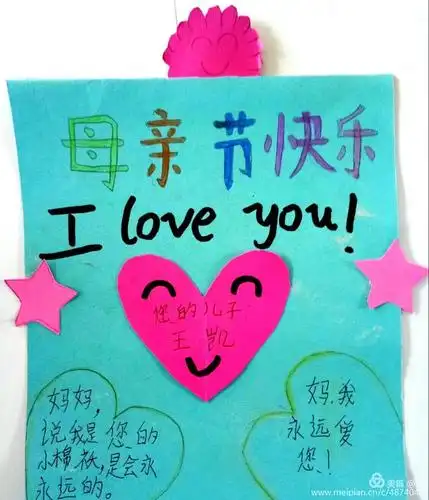 母亲节快乐
I love you!
您的儿子
王凯
妈妈,
说我是您的
小棉袄,是会永
永远的。
妈,我
永远爱
您!
美篇
www.meipian.cn/c/487404